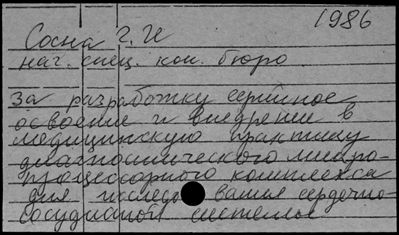 1986
Сосна Г. И
нач. спец. кон. бюро
за разработку серийное
освоение и внедрение в
медицинскую практику
диагностического микро-
процессорного комплекса
для исследования сердечно-
сосудистой системы